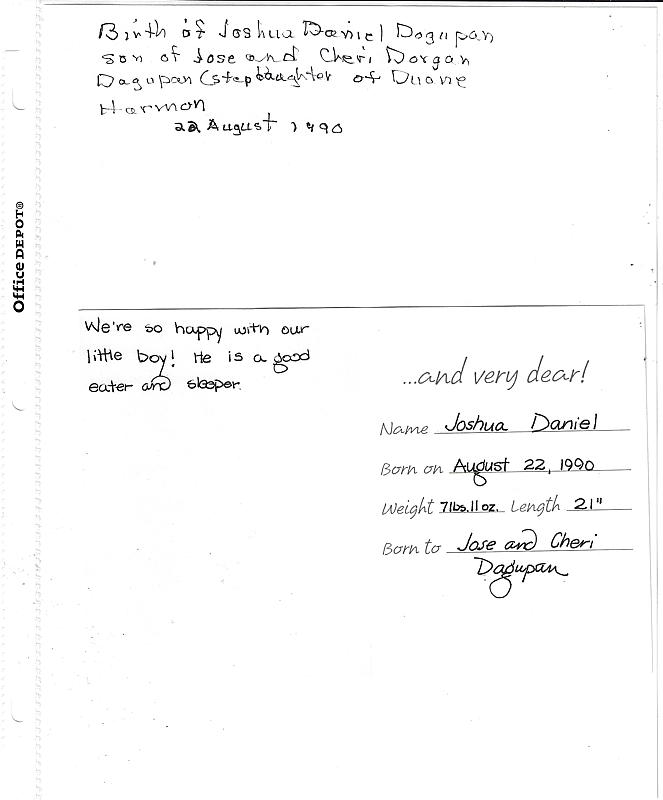 Birth of Joshua Daniel Dogupan
son of Jose and Cheri Dorgan
Dagupan (stepdaughter of Duane
Harmon
22 August 1990
Office DEPOT®
We're so happy with our
little boy! He is a good
eater and sleeper.
...and very dear!
Name Joshua Daniel
Born on August 22, 1990
Weight 7lbs.11oz. Length 21"
Born to Jose and Cheri
Dagupan